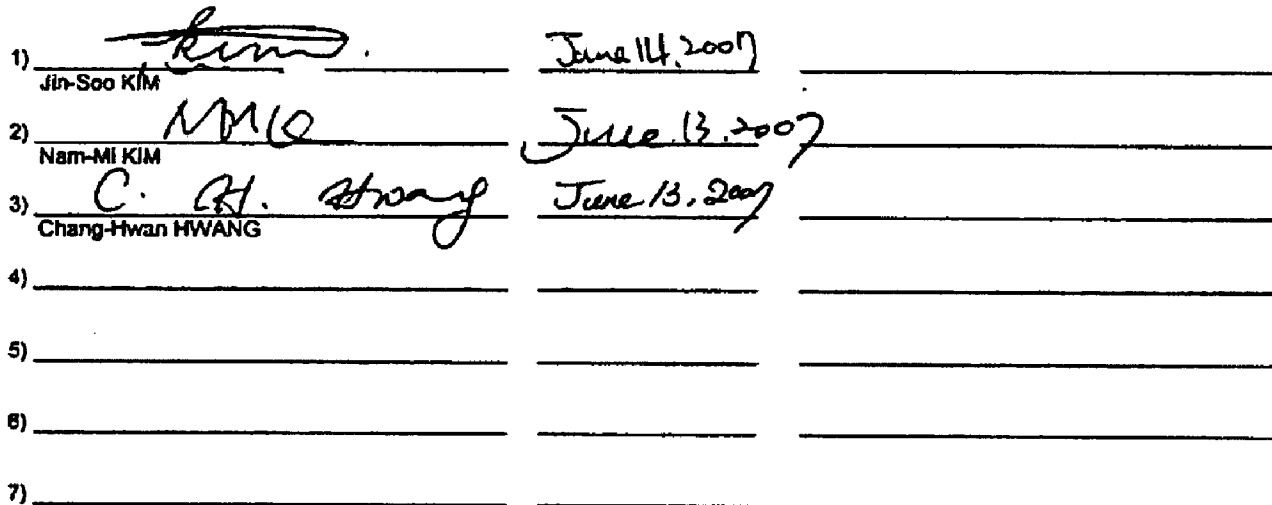 1) Kim. June 14, 2007
Jin-Soo KIM
2) June 13, 2007
Nam-Mi KIM
3) C. H. Hwang June 13, 2007
Chang-Hwan HWANG
4)
5)
6)
7)